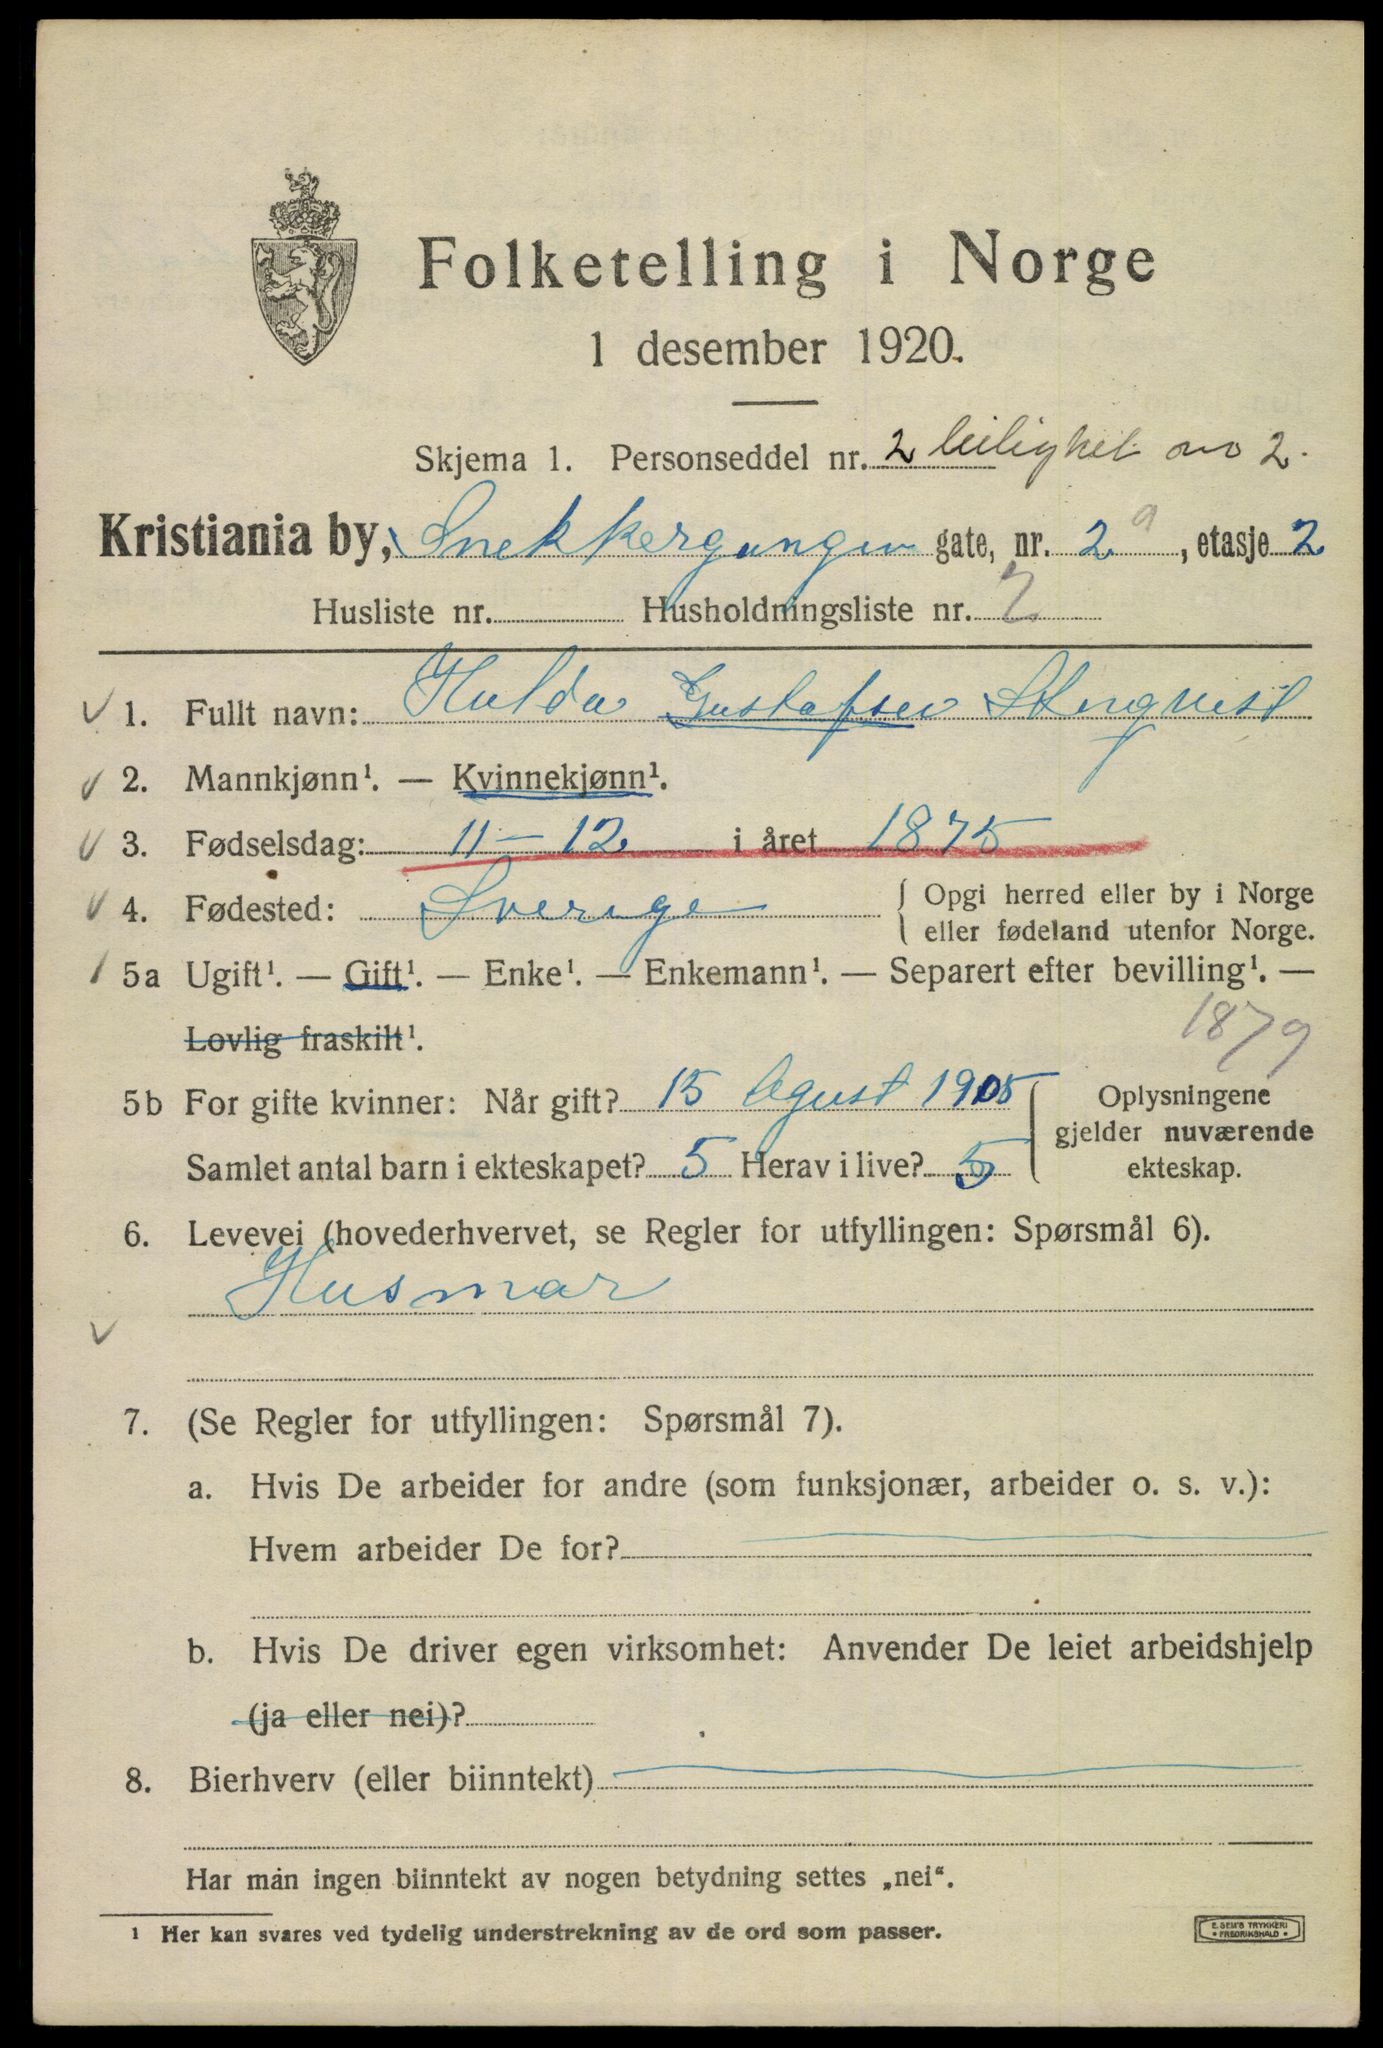 Folketelling i Norge
1 desember 1920.
Skjema 1. Personseddel nr. 2 leilighet no 2.
Kristiania by, Snekkergangen gate, nr. 2 a, etasje 2
Husliste nr. Husholdningsliste nr. 2
1. Fullt navn: Hulda Gustafsen
2. Mannkjønn¹. — Kvinnekjønn¹.
3. Fødselsdag: 11 – 12 i året 1875
4. Fødested: Sverige { Opgi herred eller by i Norge
eller fødeland utenfor Norge.
5a Ugift¹. — Gift¹. — Enke¹. — Enkemann¹. — Separert efter bevilling¹. —
Lovlig fraskilt¹.
1879
5b For gifte kvinner: Når gift? 15 Agust 1905
Samlet antal barn i ekteskapet? 5 Herav i live? 5
Oplysningene
gjelder nuværende
ekteskap.
6. Levevei (hovederhvervet, se Regler for utfyllingen: Spørsmål 6).
Husmor
7. (Se Regler for utfyllingen: Spørsmål 7).
a. Hvis De arbeider for andre (som funksjonær, arbeider o. s. v.):
Hvem arbeider De for?
b. Hvis De driver egen virksomhet: Anvender De leiet arbeidshjelp
(ja eller nei)?
8. Bierhverv (eller biinntekt)
Har man ingen biinntekt av nogen betydning settes „nei“.
¹ Her kan svares ved tydelig understrekning av de ord som passer.
E. SEM'S TRYKKERI
* FREDRIKSHALD *